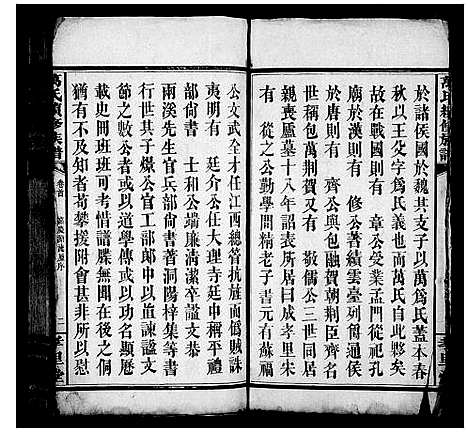 於諸侯國於魏其支子以萬爲氏蓋本春
秋以王父字爲氏義也而萬氏自此夥矣
故在戰國則有　章公受業孟門從祀孔
廟於漢則有　修公著績雲臺列爵通侯
於唐則有　齊公與包融賀朝荆臣齊名
世稱包萬荆賀又有　敬儒公三世同居
親喪廬墓十八年詔表所居曰成孝里宋
有　從之公勤學問精老子書元有蘇福
公文武全才任江西總管抗旌而僞賊誅
夷明有　廷介公任大理寺廷中稱平禮
部尚書　士和公端廉清潔卒諡文恭
雨溪先生官兵部尚書著洞陽梓集等書
以世其子燉公官工部郎中以追諫諡文
節之數公者或以道學傳或以功名顯歷
載史冊班班可考惜譜牒無聞在後之侗
猶有不及知者苟攀援附會甚非所以慰
萬氏續修族譜
卷首
萬氏續修族譜